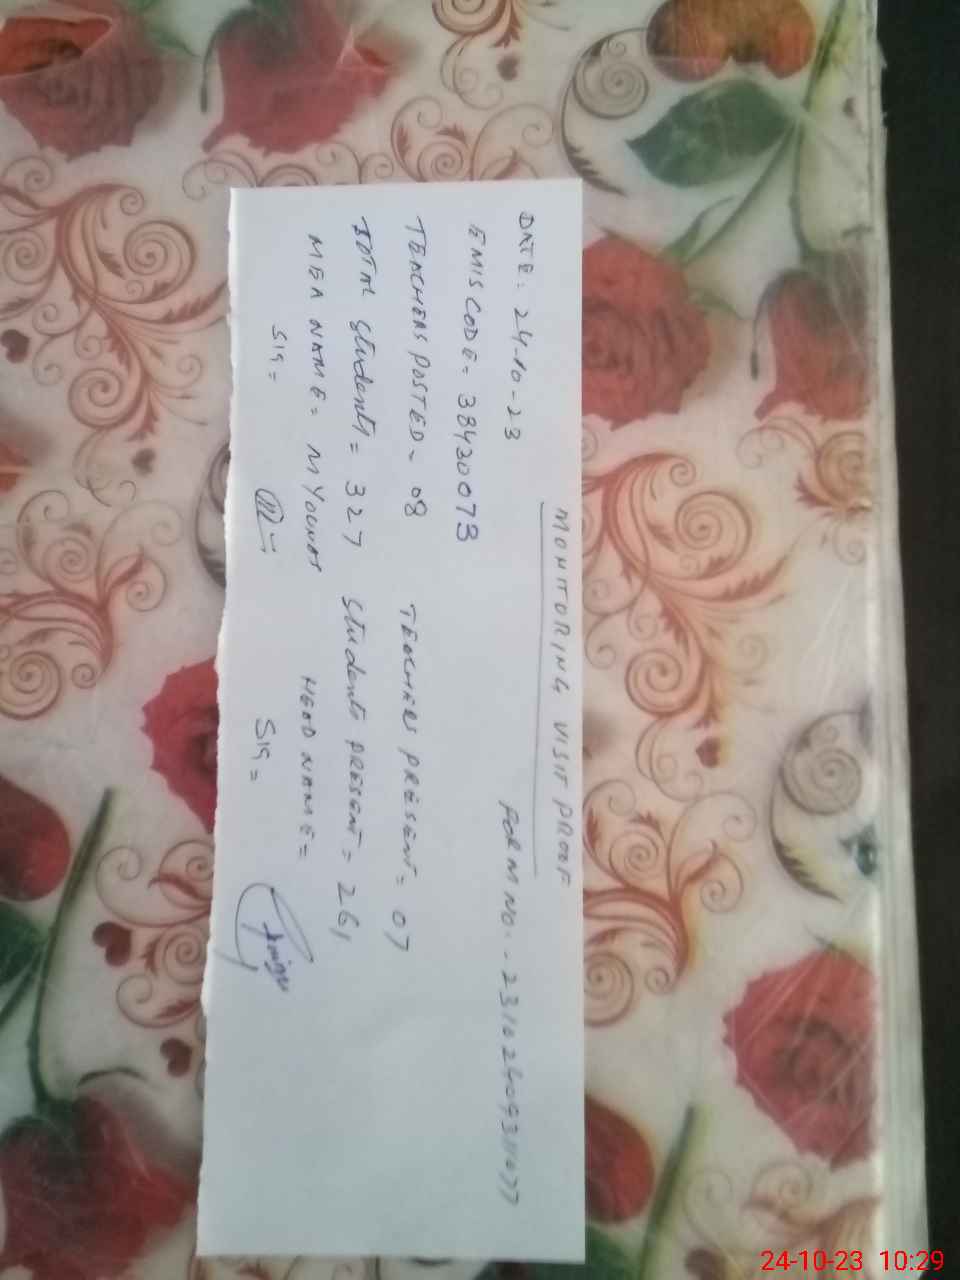 MONITORING VISIT PROOF
DATE: 24-10-23 FORM NO.-
EMIS CODE- 38430073
TEACHERS POSTED- 08 TEACHERS PRESENT- 07
TOTAL students = 327 students PRESENT = 261
MEA NAME = M YOUNAS HEAD NAME =
SIG = SIG =
24-10-23 10:29